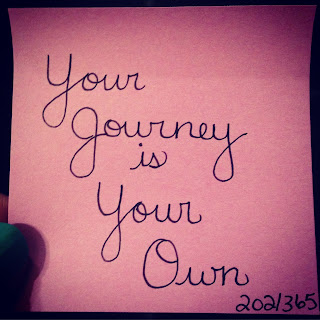 Your
Journey
is
Your
Own
202/365